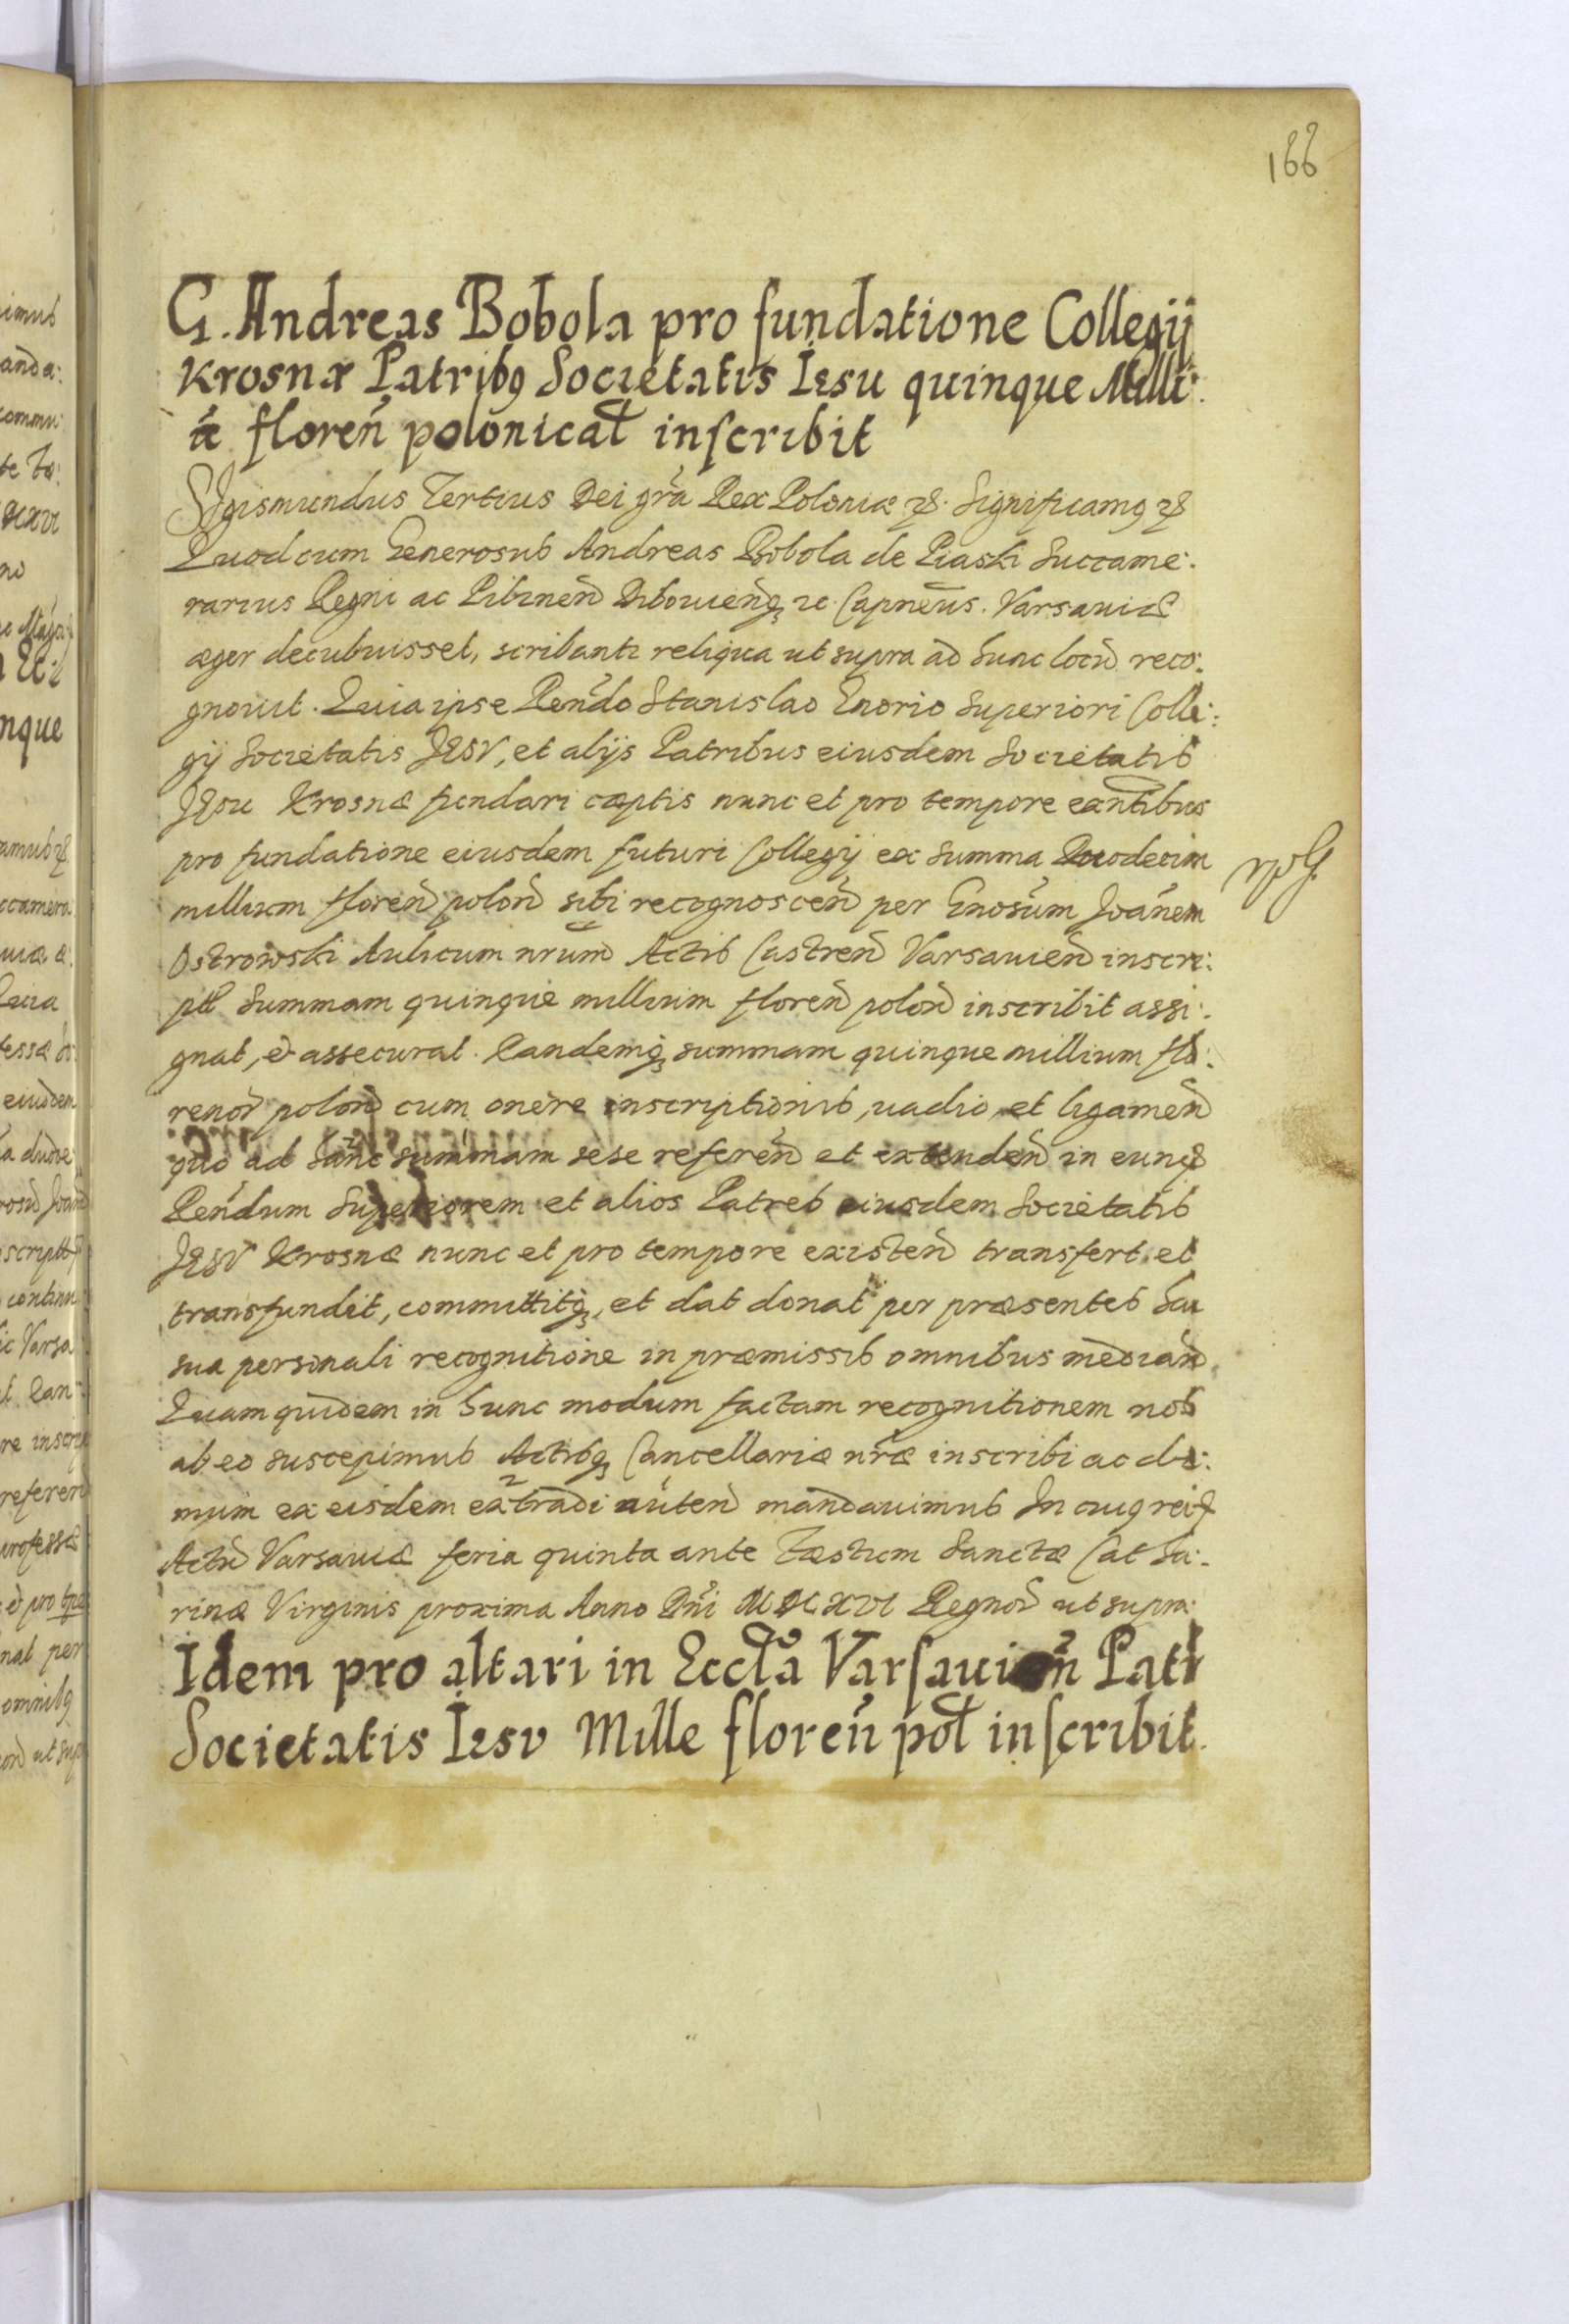 166
G. Andreas Bobola pro fundatione Collegij
Krosnæ Patribꝫ Societatis Iesu quinque Milli:
ū floreñ polonical inscribit
Sigismundus Tertius Dei gr̃a Rex Poloniæ ꝛc. Significamꝫ ꝛc
Quod cum Generosus Andreas Bobola de Piaski Succame:
rarius Regni ac Pilznen̄ Dibowienꝫ ꝛc Capneus. Varsauiæ
æger decubuisset, scribanti reliqua ut supra ad hunc locū reco:
gnouit. Quia ipse Rendo Stanislao Enorio Superiori Colle:
gij Societatis JESV, et alijs Patribus eiusdem Societatis
JEsu Krosnæ fundari cæptis nunc et pro tempore exñtibus
pro fundatione eiusdem futuri Collegij ex summa Duodecim
millium floren̄ polon̄ sibi recognoscen̄ per Gnosum Joannem
Ostrowski Aulicum nrum Actis Castren̄ Varsauien̄ inscri:
pt Summam quinque millium floren̄ polon̄ inscribit assi:
gnat, et assecurat. Eandemꝗ summam quinque millium flo:
renor̄ polon̄ cum onere inscriptionis, uadio, et ligamen̄
quo ad hanc summam sese referen̄ et extenden̄ in eund
Rendum Superiorem et alios Patres eiusdem Societatis
JESV Krosnæ nunc et pro tempore existen̄ transfert et
transfundit, committitꝗ, et dat donat per præsentes hac
sua personali recognitione in præmissis omnibus median̄
Quam quidem in hunc modum factam recognitionem nos
ab eo suscepimus Actisꝗ Cancellariæ nræ inscribi ac de:
mum ex eisdem extradi auten̄ mandauimus In cuꝫ rei
Actū Varsauiæ feria quinta ante Festum Sanctæ Catha:
rinæ Virginis proxima Anno Dñi MDCXVI Regnor̄ ut supra
Idem pro altari in Eccl̃a Varsauien̄ Patr
Societatis Iesv Mille floreñ pol inscribit.